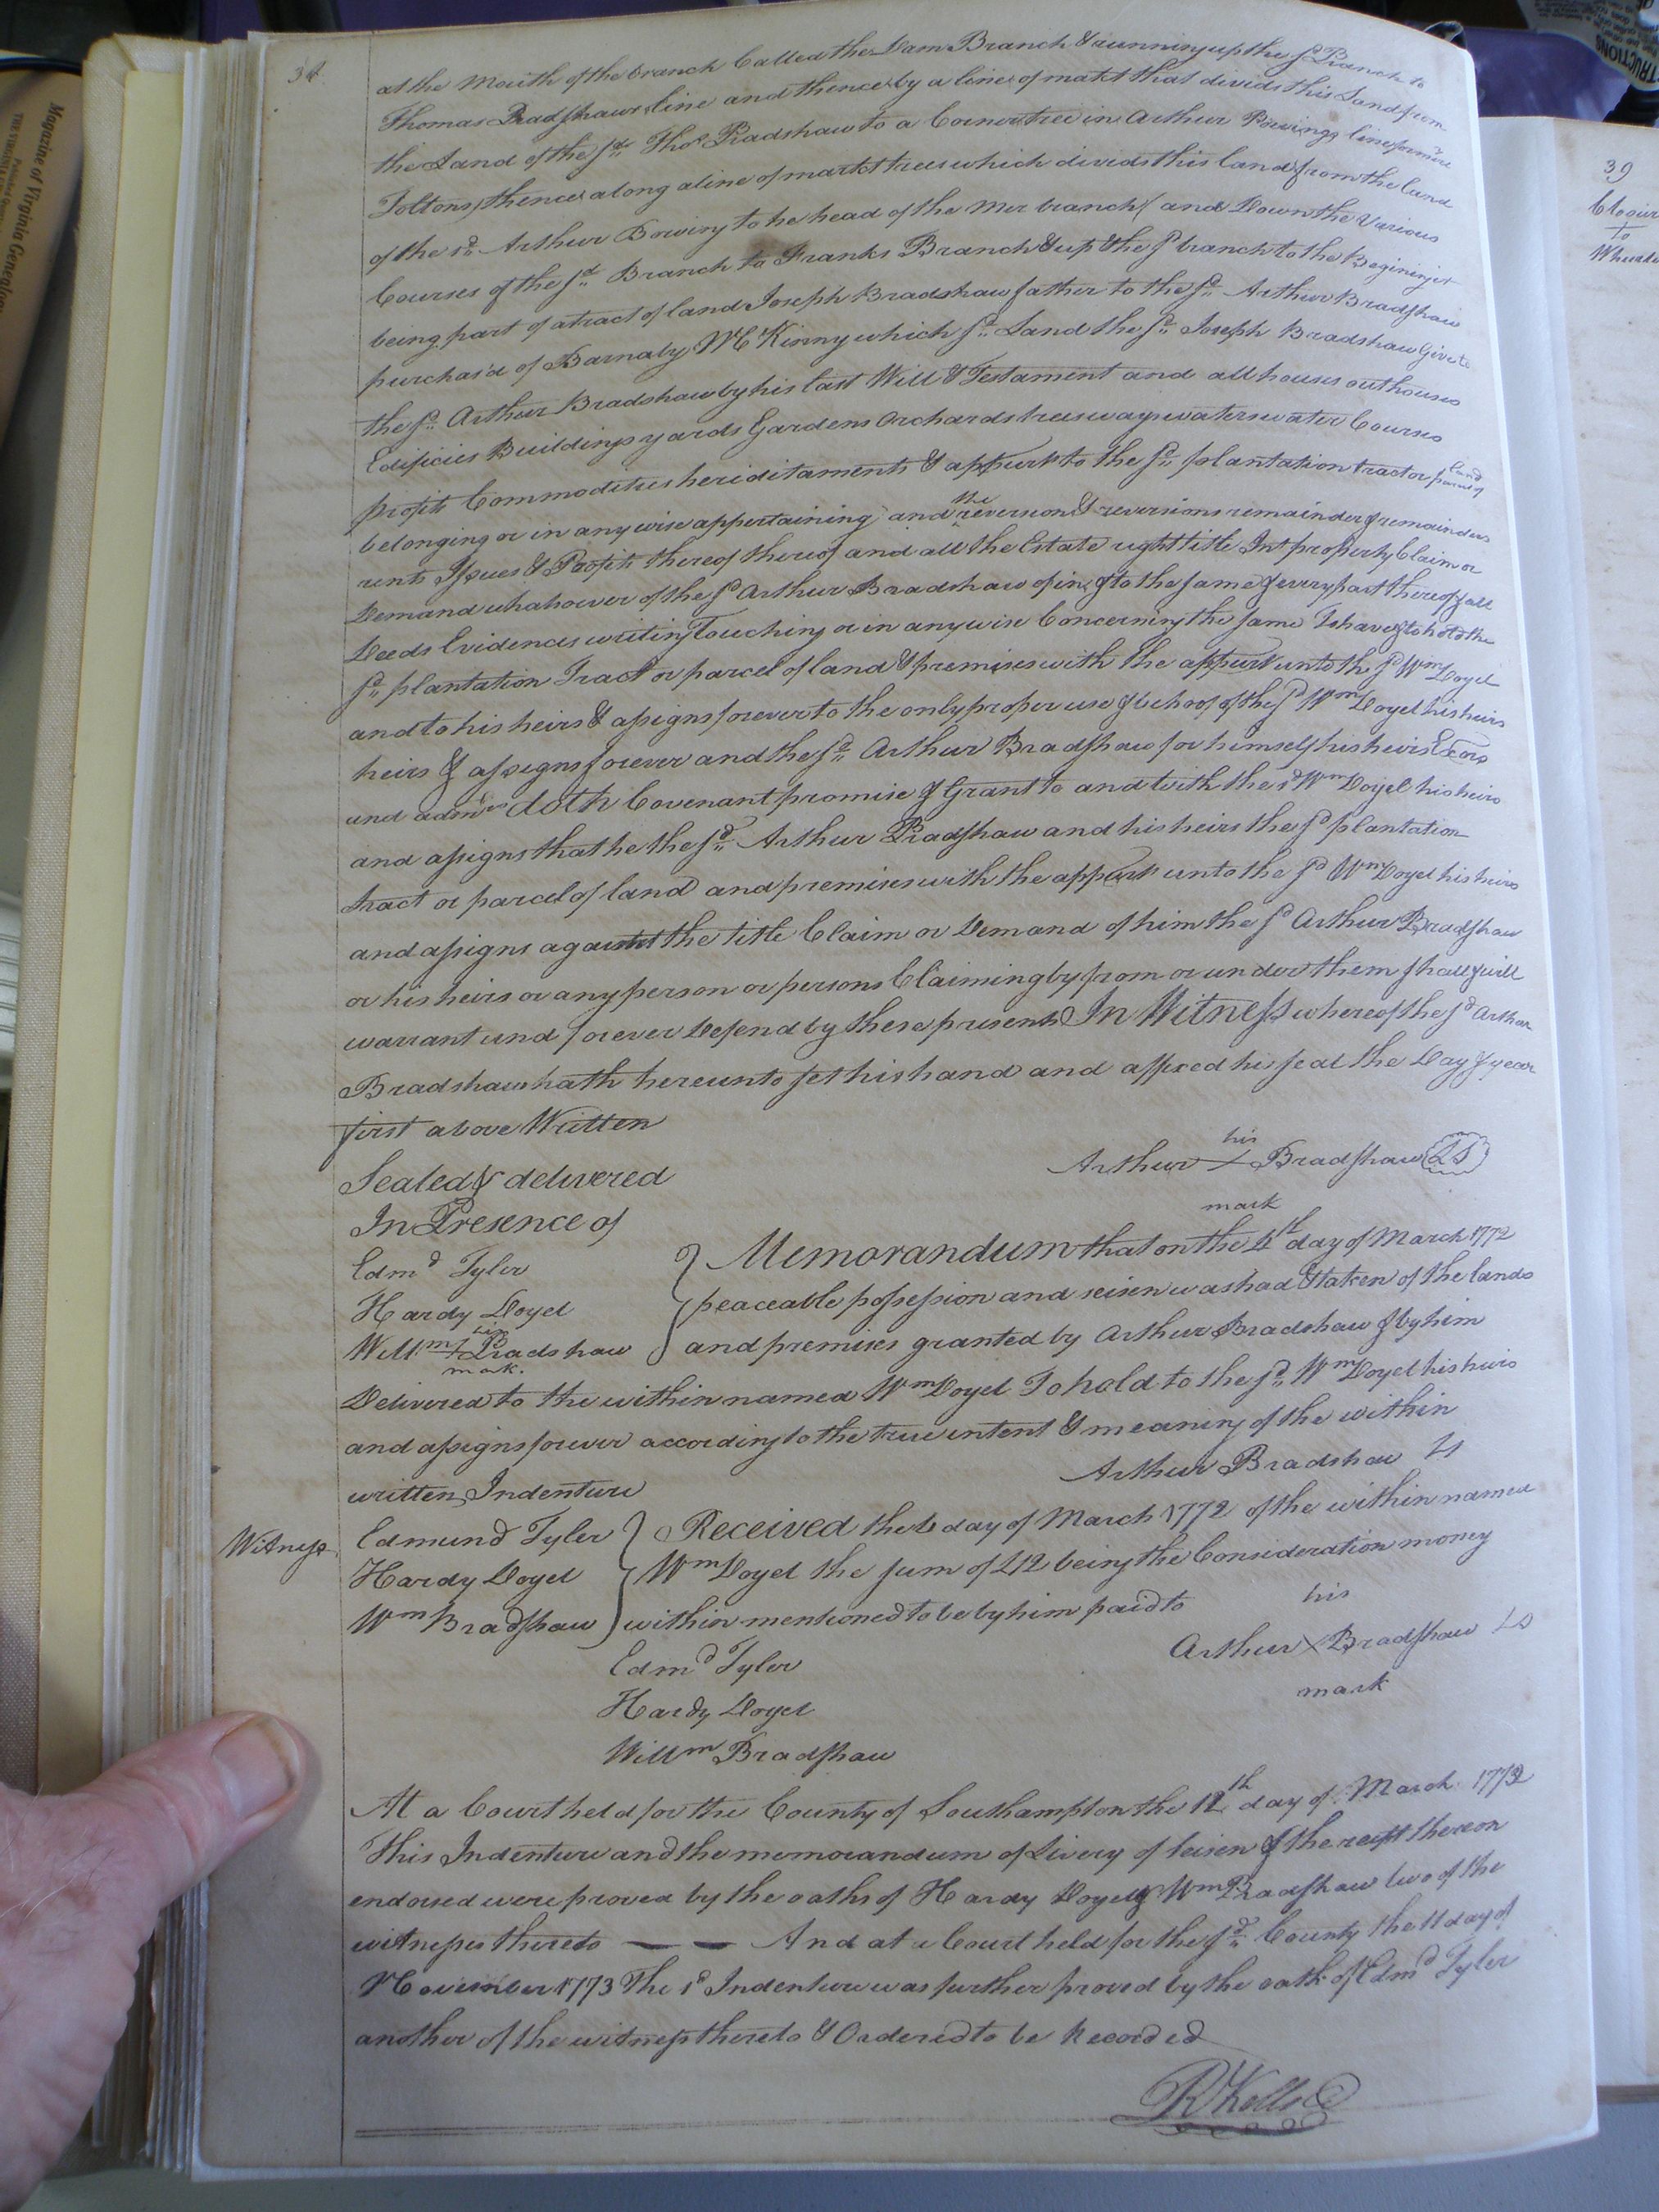 38
at the Mouth of the branch Called the Dam Branch & running up the sd. Branch to
Thomas Bradshaws line and thence by a line of markt that divids this Land from
the Land of the sd. Thos. Bradshaw to a Cornertree in Arthur Bowings line formere
Joltons, thence along a line of markt trees which divids this land from the land
of the sd. Arthur Bowing to he head of the Mer branch and Down the Various
Courses of the sd. Branch to Franks Branch & up the sd. branch to the Begining it
being part of a tract of land Joseph Bradshaw father to the sd. Arthur Bradshaw
purchasd of Barnaby McKinny which sd. Land the sd. Joseph Bradshaw Give to
the sd. Arthur Bradshaw by his last Will & Testament and all houses outhouses
Edificies Buildings yards Gardens Orchards trees ways waters water Courses
profits Commodities heriditaments & appurts to the sd. plantation tract or parcel of land
belonging or in any wise appertaining and the reversion & reversions remainder & remainders
rents Issues & Profits thereof thereof and all the Estate right title Int property Claim or
Demand whahoever of the sd. Arthur Bradshaw of in & to the same & every part thereof & all
Deeds Evidences writing Touching or in any wise Concerning the same To have & to hold the
sd. plantation Tract or parcel of land & premises with the appurt unto the sd. Wm Doyel
and to his heirs & assigns forever to the only proper use & behoof of the sd Wm Doyel his heirs
heirs & assigns forever and the sd. Arthur Bradshaw for himself his heirs Exors
and admrs doth Covenant promise & Grant to and with the sd Wm Doyel his heirs
and assigns that he the sd. Arthur Bradshaw and his heirs the sd plantation
tract or parcel of land and premises with the appurts unto the sd Wm Doyel his heirs
and assigns against the title Claim or Demand of him the sd Arthur Bradshaw
or his heirs or any person or persons Claiming by from or under them shall & will
warrant and forever Defend by these presents In Witness whereof the sd Arthur
Bradshaw hath hereunto set his hand and affixed his seal the Day & year
first above Written
Arthur his X mark Bradshaw LS
Sealed & delivered
In Presence of
Edmd Tyler
Hardy Doyel
Willm his X mark Bradshaw
Memorandum that on the 4th day of March 1772
peaceable possession and seisen was had & taken of the lands
and premises granted by Arthur Bradshaw & by him
Delivered to the within named Wm Doyel To hold to the sd. Wm Doyel his heirs
and assigns forever according to the true intent & meaning of the within
written Indenture
Arthur Bradshaw LS
Witness
Edmund Tyler
Hardy Doyel
Wm Bradshaw
Received the day of March 1772 of the within named
Wm Doyel the sum of £12 being the Consideration money
within mentioned to be by him paid to
Arthur his X mark Bradshaw LS
Edmd Tyler
Hardy Doyel
Willm Bradshaw
At a Court held for the County of Southampton the 12th day of March 1773
This Indenture and the memorandum of Livery of seisen & the receipt thereon
endorsed were proved by the oaths of Hardy Doyel & Wm Bradshaw two of the
witnesses thereto — — And at a Court held for the sd. County the 11 day of
November 1773 The sd Indenture was further proved by the oath of Edmd Tyler
another of the witness thereto & Ordered to be Recorded
R Kello
39
to
Magazine of Virginia Genealogy